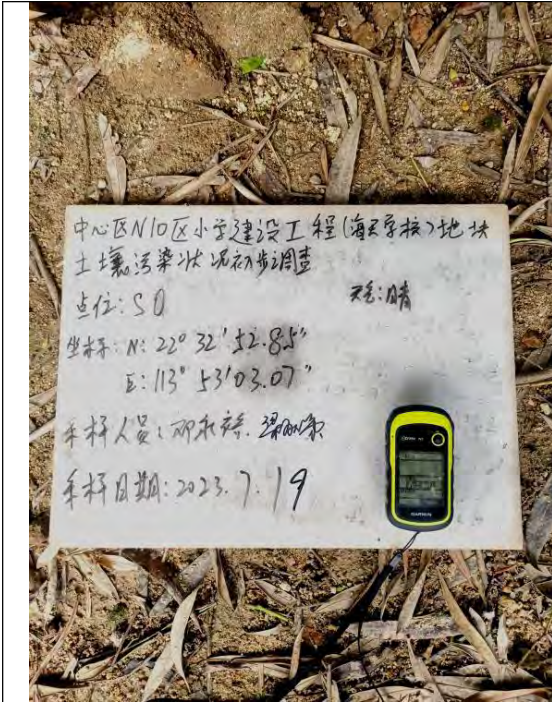 中心区N10区小学建设工程(海天学校)地块
土壤污染状况初步调查
点位: S0
天气: 晴
坐标: N: 22° 32' 52.85"
E: 113° 53' 03.07"
采样人员:
采样日期: 2023.7.19
GARMIN